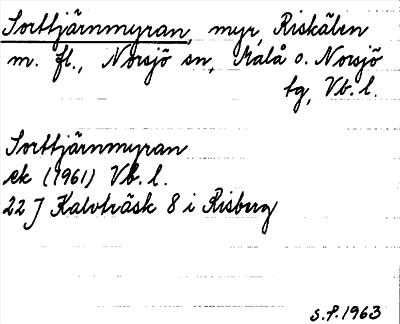 Sorttjärnmyran, myr, Riskälen
m. fl., Norsjö sn, Malå o. Norsjö
tg, Vb. l.
Sorttjärnmyran
ek (1961) Vb. l.
22 J Kalvträsk 8 i Risberg
S.F. 1963